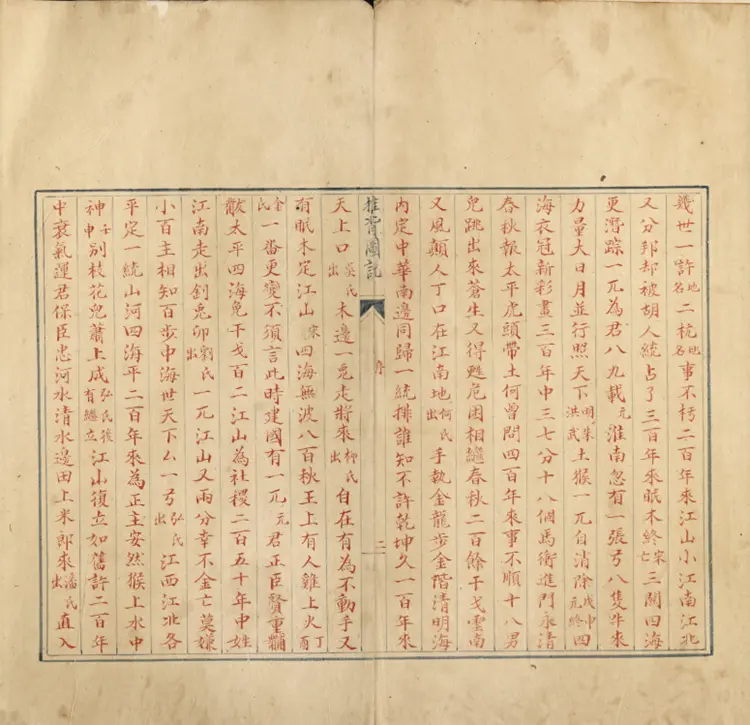 幾世一許地名二梳地名事不朽二百年來江山小江南江北
又分邦却被胡人統占了三百年來眠木終宋亡三關四海
更潛踪一兀為君八九載元淮南忽有一張弓八隻牛來
力量大日月並行照天下明朱洪武土猴一兀自消除戊申元終四
海衣冠新彩畫三百年中三七分十八個馬衝進門永清
春秋報太平虎頭帶土何曾問四百年來事不順十八男
兒跳出來蒼生又得甦危困相繼春秋二百餘干戈雲南
又風顛人丁口在江南地何氏出手執金龍步金階清明海
內定中華南邊同歸一統排誰知不許乾坤久一百年來
推背圖記 序 二
天上口吳氏出木邊一兔走將來柳氏出自在有為不動手又
有眠木定江山宋四海無波八百秋王上有人雞上火丁酉
金氏一番更變不須言此時建國有一兀元君正臣賢重輔
猷太平四海兔干戈百二江山為社稷二百五十年中姓
江南走出釗兔卯劉氏出一兀江山又兩分幸不金亡莫嫌
小百主相知百步中海世天下厶一弓弘氏出江西江北各
平定一統山河四海平二百年來為正主安然猴上水中
神壬申別枝花兒蕭上成弘氏後有繼立江山復立如舊許二百年
中衰氣運君保臣忠河水清水邊田上米郎來潘氏出直入